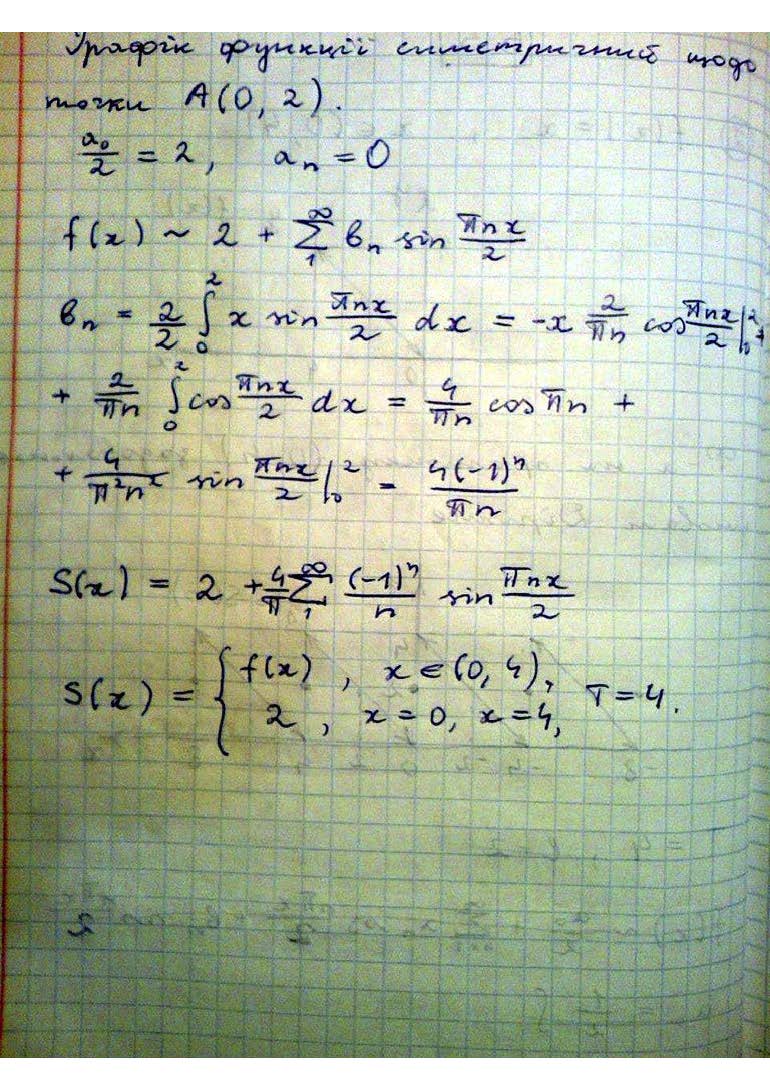 Графік функції симетричний щодо
точки A(0, 2).
a₀/2 = 2, aₙ = 0
f(x) ~ 2 + ∑₁^∞ bₙ sin πnx/2
bₙ = 2/2 ∫₀² x sin πnx/2 dx = -x 2/πn cos πnx/2 |₀² +
+ 2/πn ∫₀² cos πnx/2 dx = 4/πn cos πn +
+ 4/π²n² sin πnx/2 |₀² = 4(-1)ⁿ/πn
S(x) = 2 + 4/π ∑₁^∞ (-1)ⁿ/n sin πnx/2
S(x) = { f(x), x ∈ (0, 4),
2, x = 0, x = 4, T = 4.